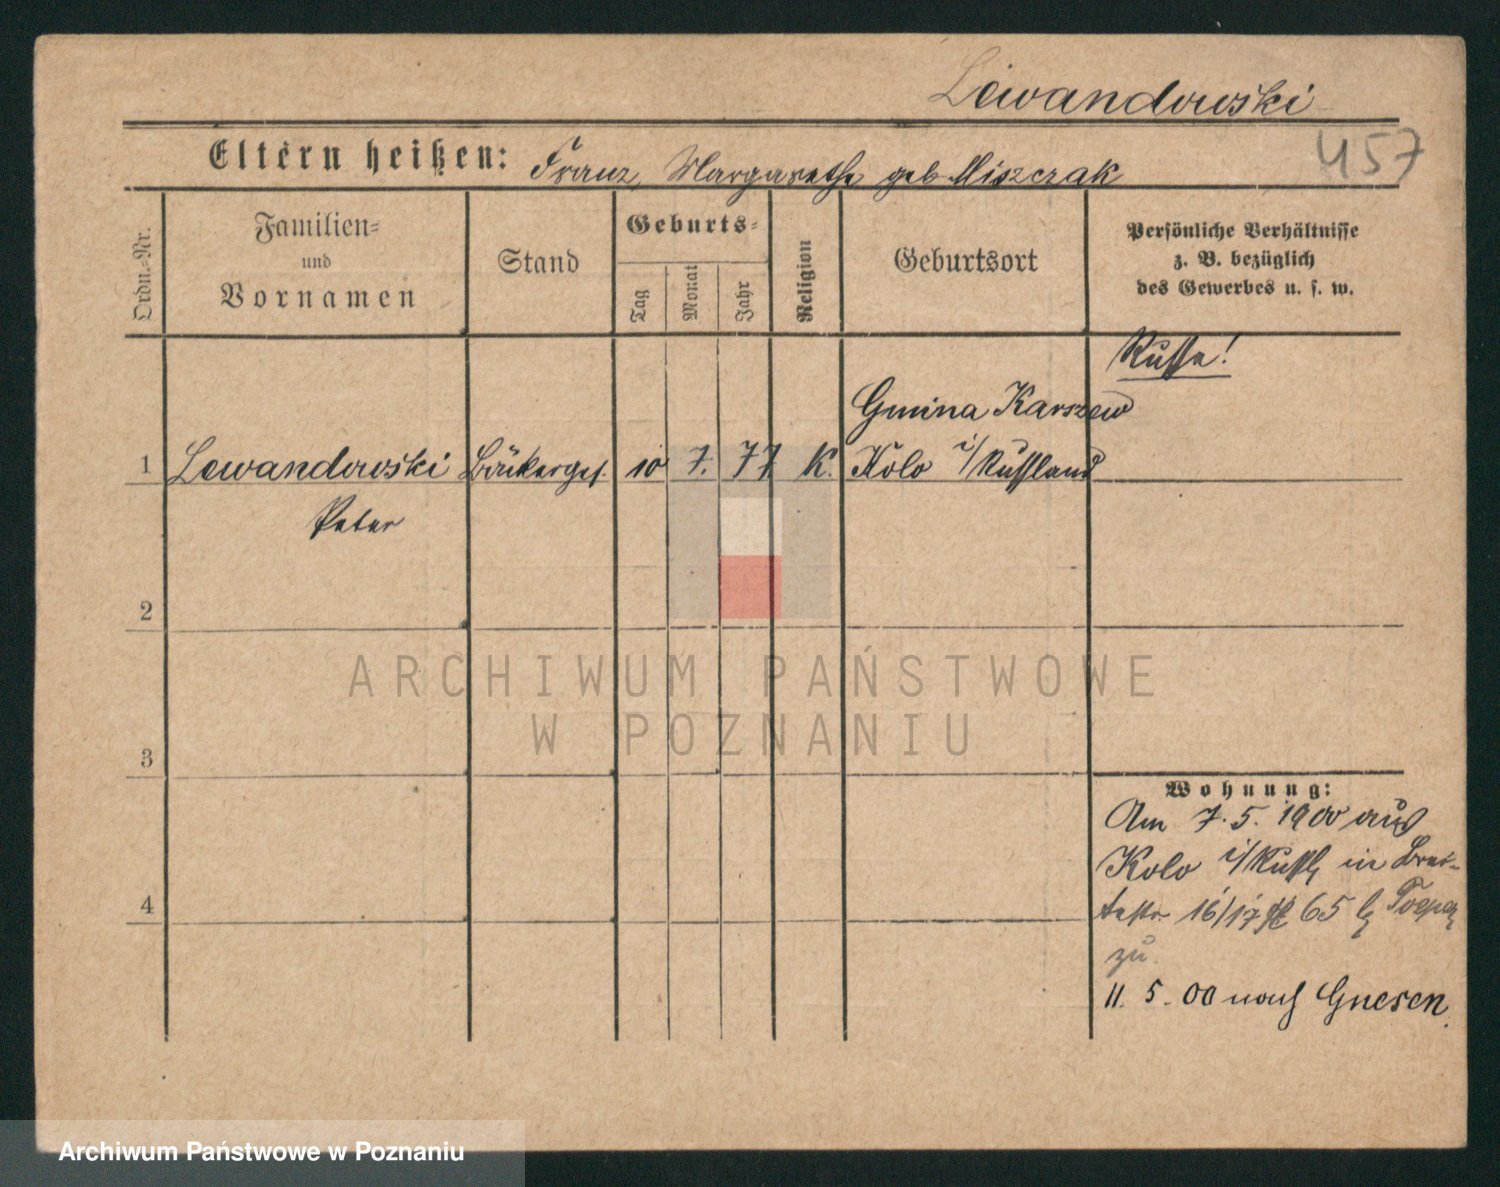 Lewandowski
Eltern heißen: Franz, Margarethe geb Miszczak
457
Ordn.=Nr.
Familien=
und
Vornamen
Stand
Geburts=
Tag
Monat
Jahr
Religion
Geburtsort
Persönliche Verhältnisse
z. B. bezüglich
des Gewerbes u. s. w.
Russe!
Gmina Karszew
1 Lewandowski Bäckerges. 10 7. 77 K. Kolo i/Russland
Peter
2
3
4
Wohnung:
Am 7. 5. 1900 aus
Kolo i/Russl in Brei-
testr. 16/17 65 b
zu.
11. 5. 00 nach Gnesen.
ARCHIWUM PAŃSTWOWE
W POZNANIU
Archiwum Państwowe w Poznaniu